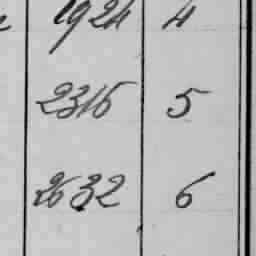 1924 4
2316 5
2632 6